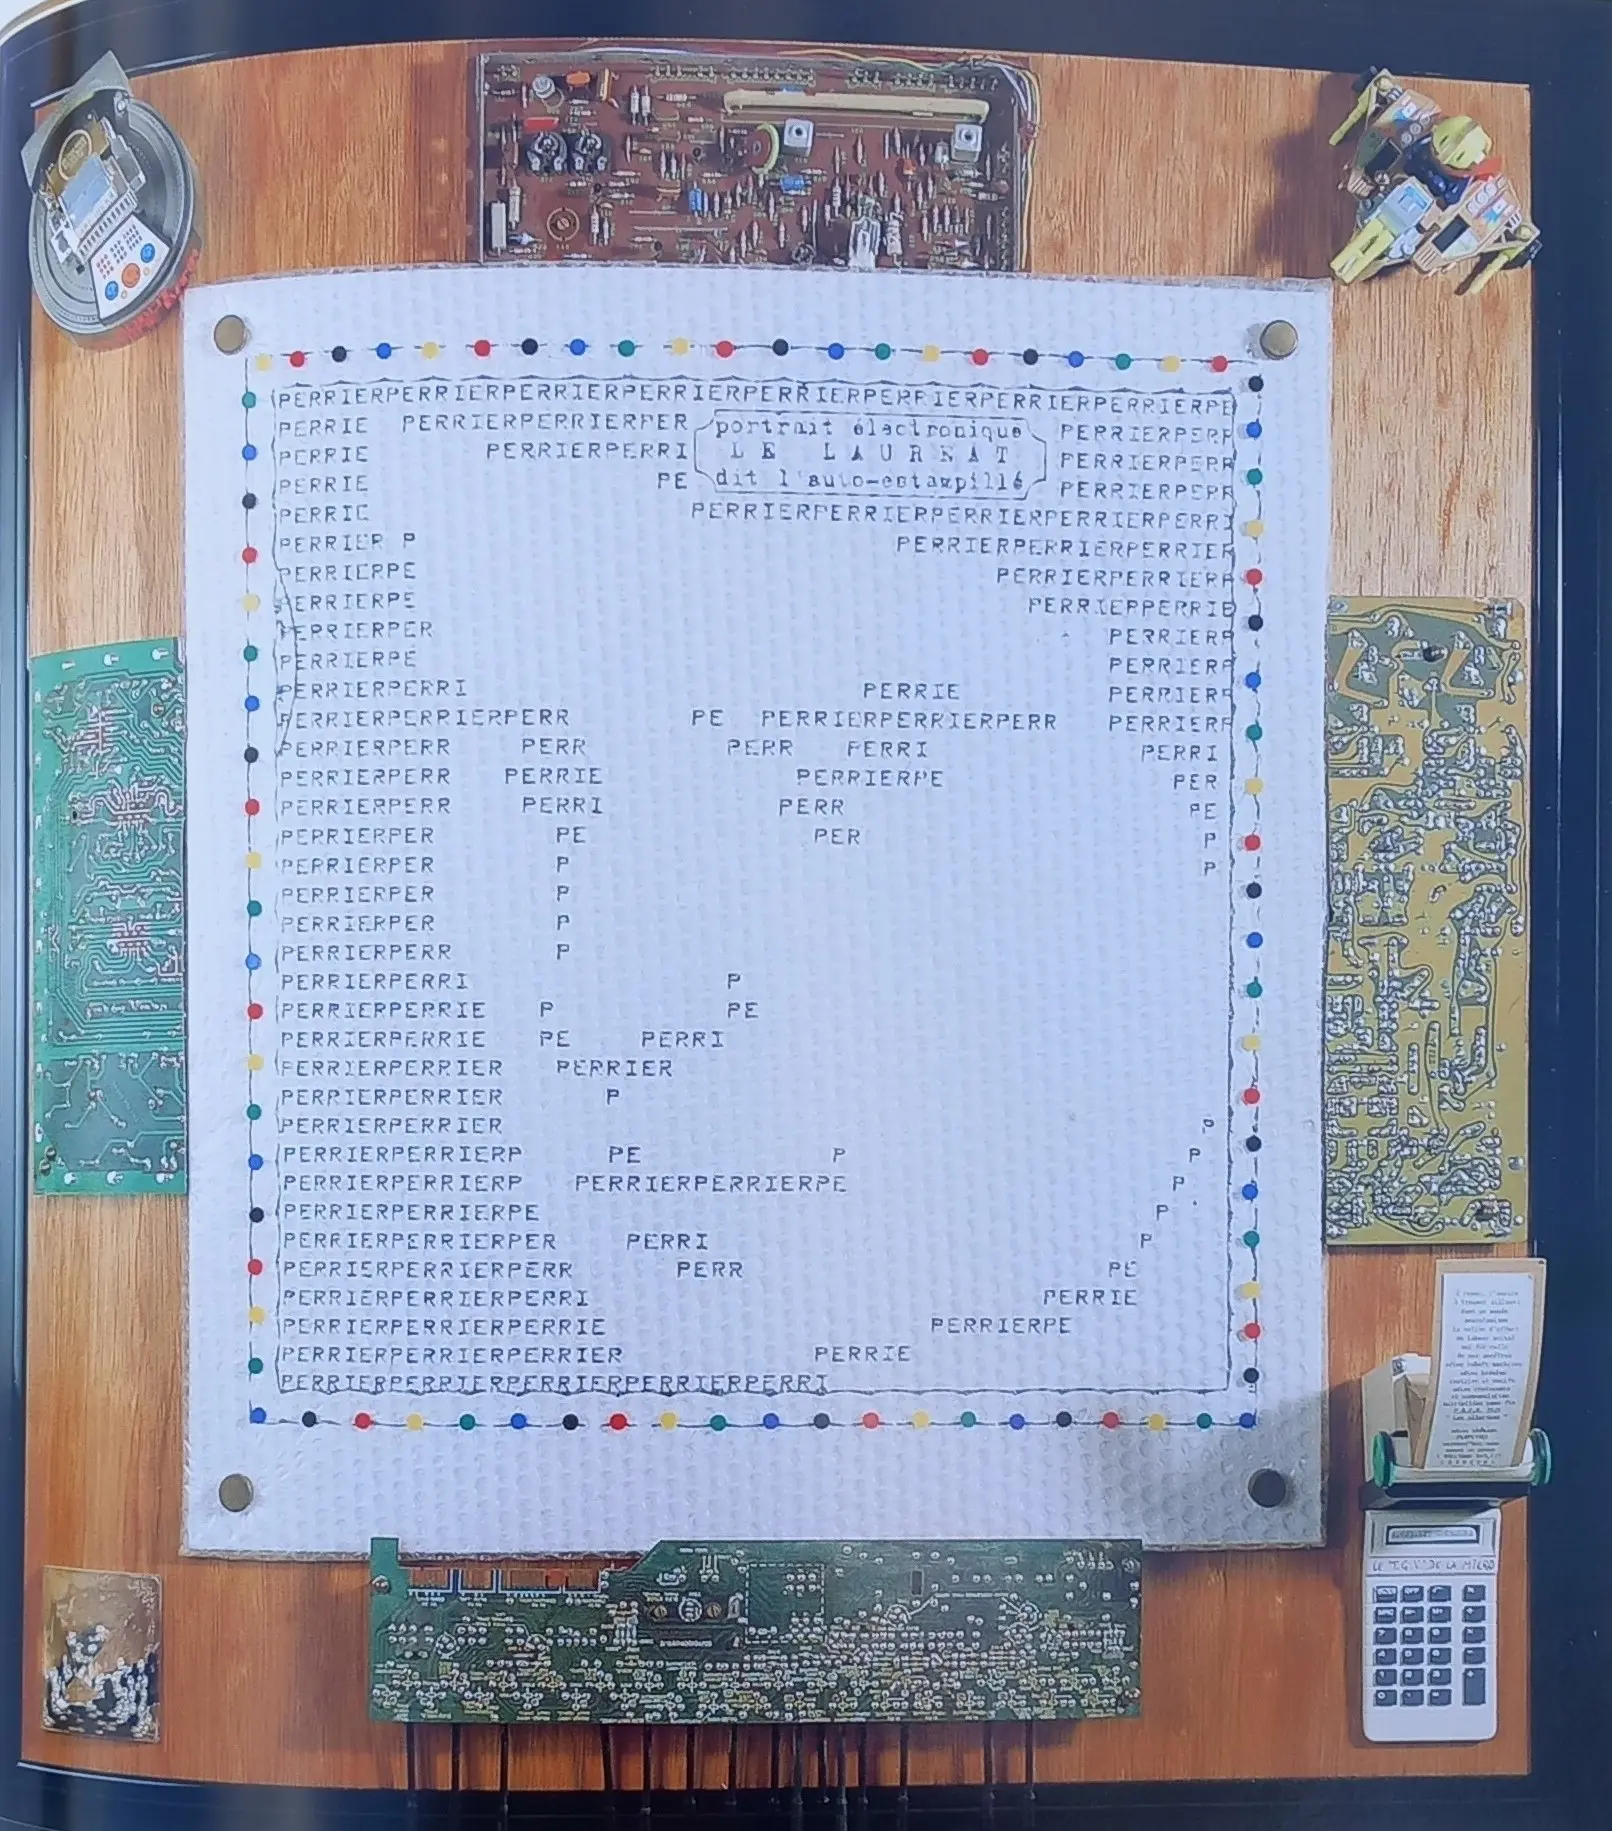 PERRIERPERRIERPERRIERPERRIERPERRIERPERRIERPERRIERPERRIERPE
PERRIE PERRIERPERRIERPER portrait électronique PERRIERPERR
PERRIE PERRIERPERRI LE LAUREAT PERRIERPERR
PERRIE PE dit l'auto-estampillé PERRIERPERR
PERRIE PERRIERPERRIERPERRIERPERRIERPERRI
PERRIER P PERRIERPERRIERPERRIER
PERRIERPE PERRIERPERRIERP
PERRIERPE PERRIERPERRIE
PERRIERPER PERRIERP
PERRIERPE PERRIERP
PERRIERPERRI PERRIE PERRIERP
PERRIERPERRIERPERR PE PERRIERPERRIERPERR PERRIERP
PERRIERPERR PERR PERR PERRI PERRI
PERRIERPERR PERRIE PERRIERPE PER
PERRIERPERR PERRI PERR PE
PERRIERPER PE PER P
PERRIERPER P P
PERRIERPER P
PERRIERPER P
PERRIERPERR P
PERRIERPERRI P
PERRIERPERRIE P PE
PERRIERPERRIE PE PERRI
PERRIERPERRIER PERRIER
PERRIERPERRIER P
PERRIERPERRIER P
PERRIERPERRIERP PE P P
PERRIERPERRIERP PERRIERPERRIERPE P
PERRIERPERRIERPE P
PERRIERPERRIERPER PERRI P
PERRIERPERRIERPERR PERR PE
PERRIERPERRIERPERRI PERRIE
PERRIERPERRIERPERRIE PERRIERPE
PERRIERPERRIERPERRIER PERRIE
PERRIERPERRIERPERRIERPERRIERPERRI
LE T.G.V. DE LA MICRO